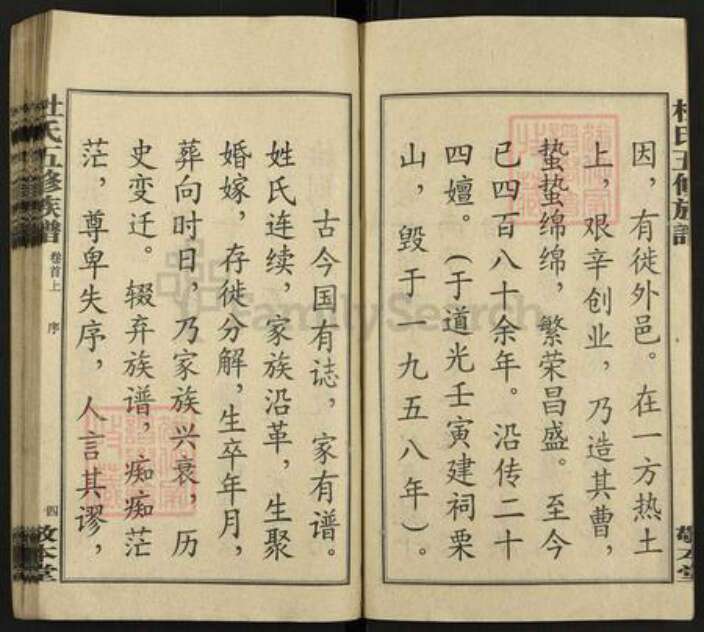 因，有徙外邑。在一方热土
上，艰辛创业，乃造其曹，
蛰蛰绵绵，繁荣昌盛。至今
已四百八十余年。沿传二十
四嬗。（于道光壬寅建祠栗
山，毁于一九五八年）。
古今国有誌，家有谱。
姓氏连续，家族沿革，生聚
婚嫁，存徙分解，生卒年月，
葬向时日，乃家族兴衰，历
史变迁。辍弃族谱，痴痴茫
茫，尊卑失序，人言其谬，
杜氏五修族譜
卷首上
序
四
敦本堂
FamilySearch